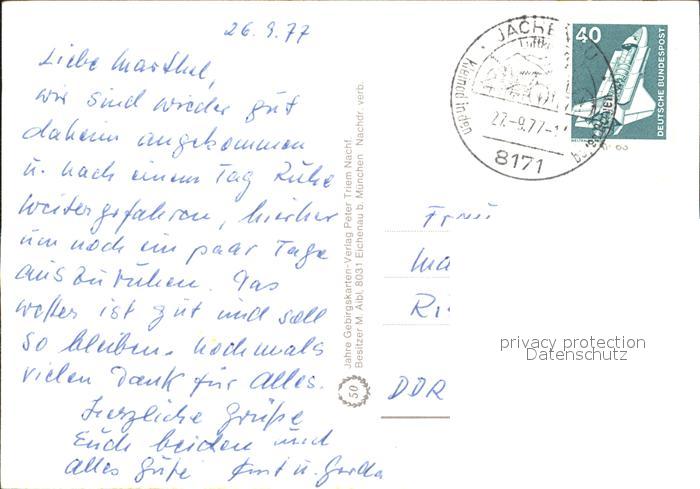 26.9.77
Liebe Marthel,
wir sind wieder gut
daheim angekommen
u. nach einem Tag Ruhe
weitergefahren, hierher
um noch ein paar Tage
auszuruhen. Das
Wetter ist gut und soll
so bleiben. Nochmals
vielen Dank für Alles.
Herzliche Grüße
Euch beiden und
alles Gute u. Gerda
50 Jahre Gebirgskarten-Verlag Peter Triem Nachf.
Besitzer M. Aibl, 8031 Eichenau b. München Nachdr. verb.
JACHENAU
27.-9.77
8171
40
DEUTSCHE BUNDESPOST
Frau
Ma
Ri
DDR
privacy protection
Datenschutz